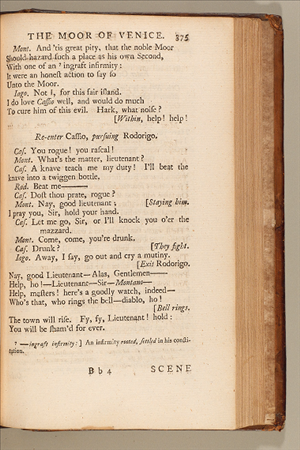 THE MOOR OF VENICE. 375
Mont. And 'tis great pity, that the noble Moor
Should hazard such a place as his own Second,
With one of an ⁷ ingraft infirmity:
It were an honest action to say so
Unto the Moor.
Iago. Not I, for this fair island.
I do love Cassio well, and would do much
To cure him of this evil. Hark, what noise?
[Within, help! help!
Re-enter Cassio, pursuing Rodorigo.
Cas. You rogue! you rascal!
Mont. What's the matter, lieutenant?
Cas. A knave teach me my duty! I'll beat the
knave into a twiggen bottle.
Rod. Beat me———
Cas. Dost thou prate, rogue?
Mont. Nay, good lieutenant; [Staying him.
I pray you, Sir, hold your hand.
Cas. Let me go, Sir, or I'll knock you o'er the
mazzard.
Mont. Come, come, you're drunk.
Cas. Drunk? [They fight.
Iago. Away, I say, go out and cry a mutiny.
[Exit Rodorigo.
Nay, good Lieutenant—Alas, Gentlemen——
Help, ho!—Lieutenant—Sir—Montano—
Help, masters! here's a goodly watch, indeed—
Who's that, who rings the bell—diablo, ho!
[Bell rings.
The town will rise. Fy, fy, Lieutenant! hold:
You will be sham'd for ever.
⁷ —ingraft infirmity:] An infirmity rooted, settled in his consti-
tution.
B b 4 SCENE